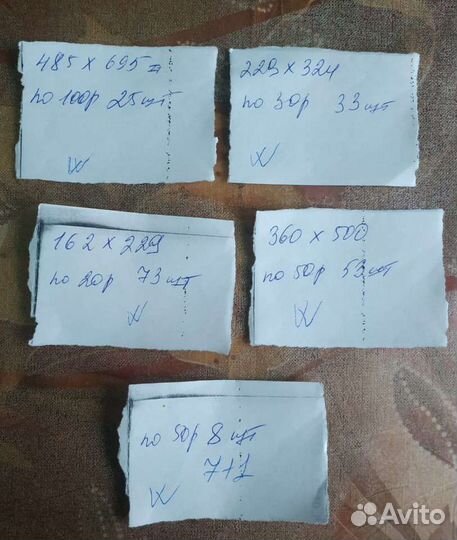 485 х 695
по 100р 25 шт
W
229 х 324
по 30р 33 шт
W
162 х 229
по 20р 73 шт
W
360 х 500
по 50р 53 шт
W
по 50р 8 шт
7+1
W
Avito